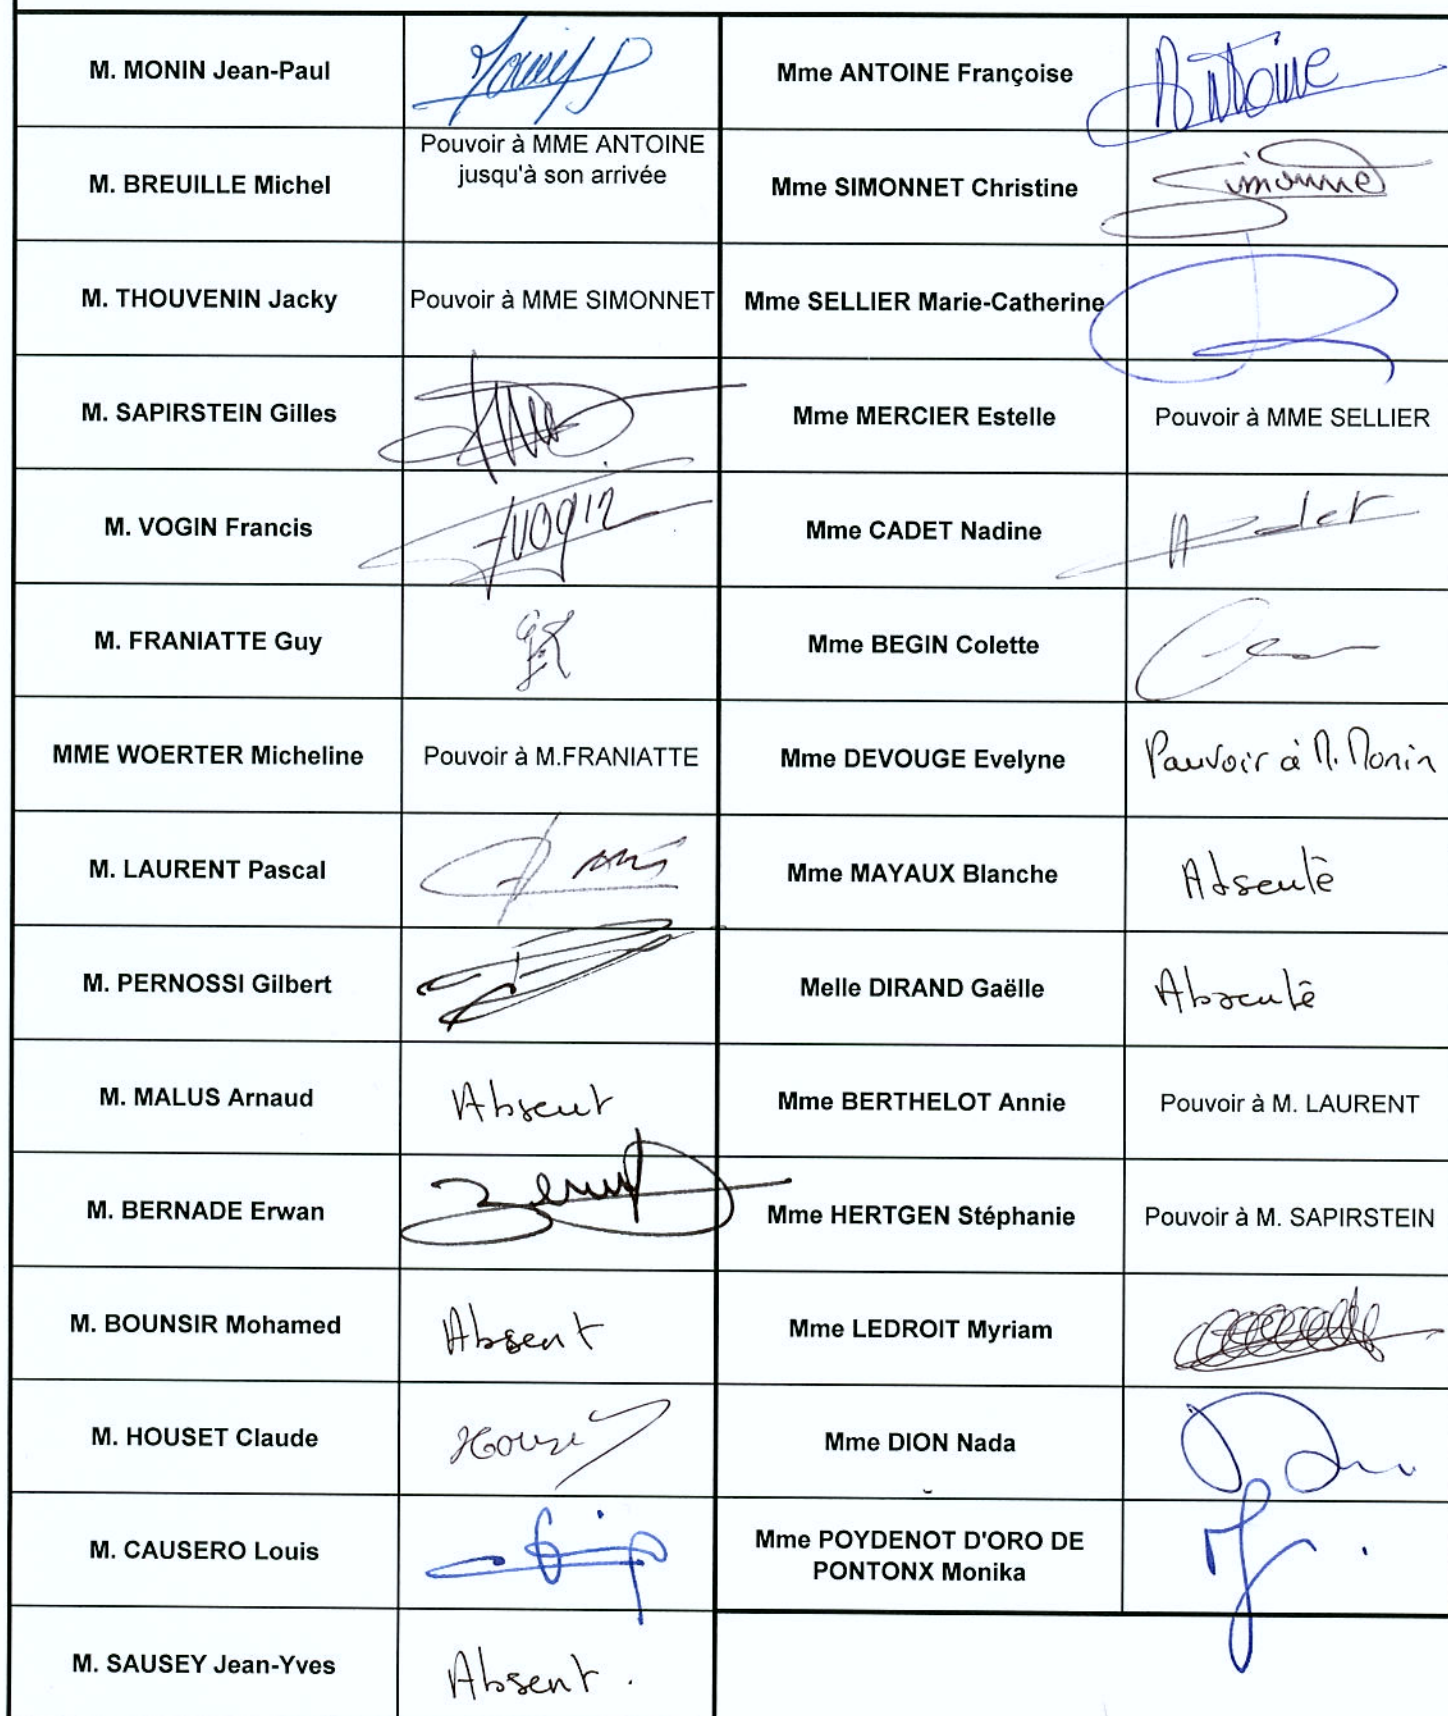 M. MONIN Jean-Paul
Mme ANTOINE Françoise
Antoine
M. BREUILLE Michel
Pouvoir à MME ANTOINE
jusqu'à son arrivée
Mme SIMONNET Christine
M. THOUVENIN Jacky
Pouvoir à MME SIMONNET
Mme SELLIER Marie-Catherine
M. SAPIRSTEIN Gilles
Mme MERCIER Estelle
Pouvoir à MME SELLIER
M. VOGIN Francis
Vogin
Mme CADET Nadine
M. FRANIATTE Guy
Mme BEGIN Colette
MME WOERTER Micheline
Pouvoir à M.FRANIATTE
Mme DEVOUGE Evelyne
Pouvoir à M. Monin
M. LAURENT Pascal
Mme MAYAUX Blanche
Absente
M. PERNOSSI Gilbert
Melle DIRAND Gaëlle
Absente
M. MALUS Arnaud
Absent
Mme BERTHELOT Annie
Pouvoir à M. LAURENT
M. BERNADE Erwan
Mme HERTGEN Stéphanie
Pouvoir à M. SAPIRSTEIN
M. BOUNSIR Mohamed
Absent
Mme LEDROIT Myriam
M. HOUSET Claude
Mme DION Nada
M. CAUSERO Louis
Mme POYDENOT D'ORO DE
PONTONX Monika
M. SAUSEY Jean-Yves
Absent.